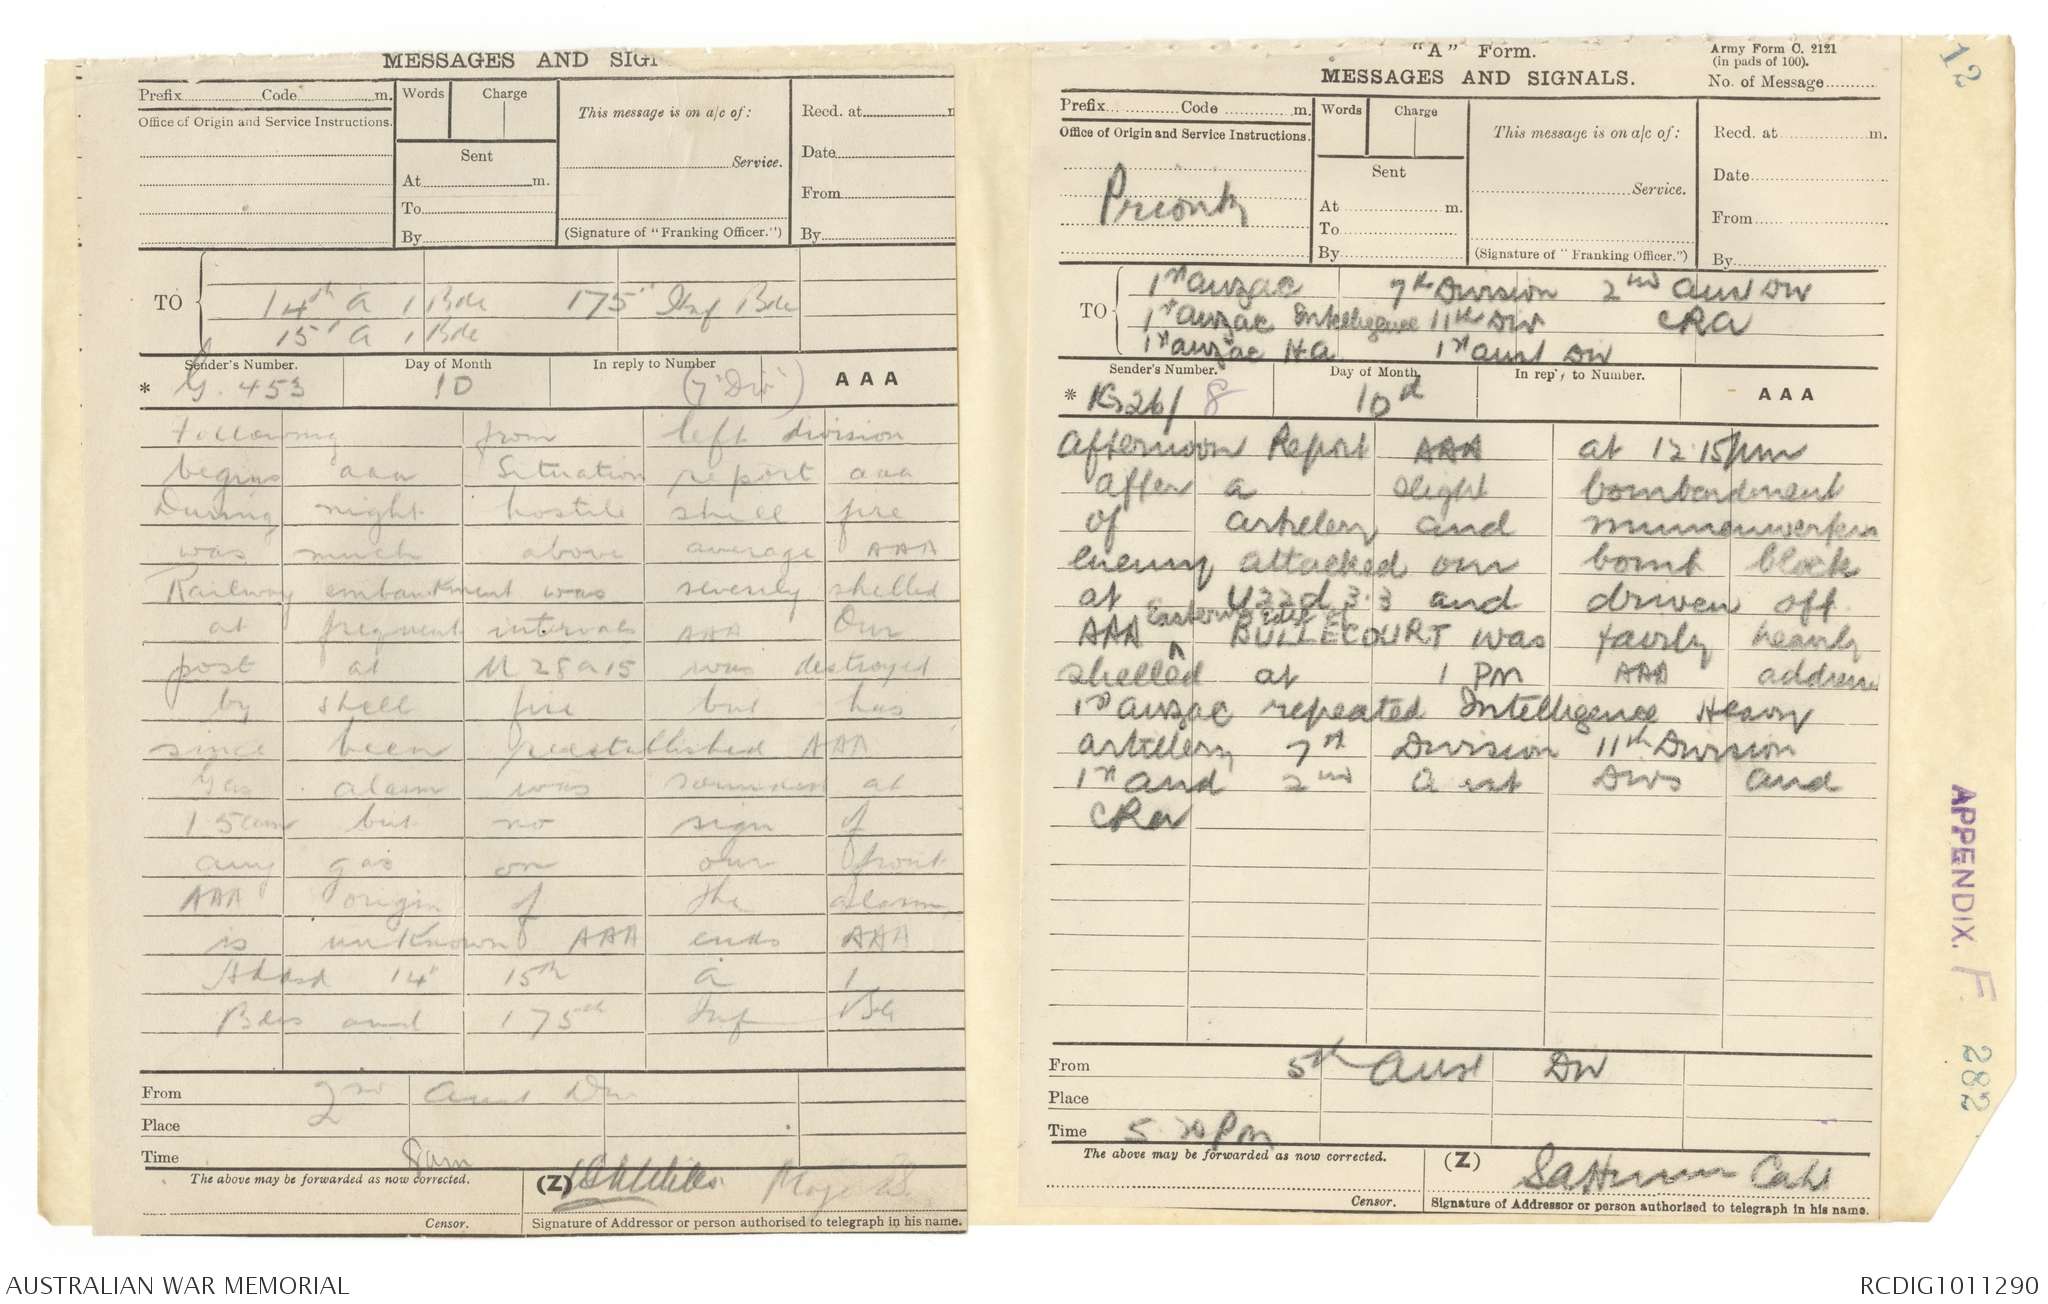 MESSAGES AND SIG
Prefix Code m.
Words Charge
This message is on a/c of:
Recd. at
Office of Origin and Service Instructions.
Sent
Service.
Date
At m.
From
To
By
(Signature of "Franking Officer.")
By
TO
14th A I Bde 175th Inf Bde
15th A I Bde
Sender's Number. Day of Month In reply to Number AAA
* G. 453 10 (7 Div)
Following from left division
begins aaa Situation report aaa
During night hostile shell fire
was much above average AAA
Railway embankment was severely shelled
at frequent intervals AAA Our
post at U 28 a 15 was destroyed
by shell fire but has
since been reestablished AAA
Gas alarm was sounded at
1 5am but no sign of
any gas on our front
AAA origin of the alarm
is unknown AAA ends AAA
Addsd 14th 15th A I
Bdes and 175th Inf Bde
From 2nd Aust Div
Place
Time 8am
The above may be forwarded as now corrected. (Z) Major
Censor. Signature of Addressor or person authorised to telegraph in his name.
"A" Form. Army Form C. 2121
(in pads of 100).
MESSAGES AND SIGNALS. No. of Message
Prefix Code m.
Words Charge
This message is on a/c of:
Recd. at m.
Office of Origin and Service Instructions.
Sent
Service.
Date
Priority
At m.
From
To
By
(Signature of "Franking Officer.")
By
TO
1st Anzac 7th Division 2nd Aust Div
1st Anzac Intelligence 11th Div CRA
1st Anzac HA 1st Aust Div
Sender's Number. Day of Month. In reply to Number. AAA
* KS26/ 8 10th
Afternoon Report AAA at 12.15 pm
after a slight bombardment
of artillery and minnenwerfers
enemy attacked our bomb block
at U22d 3.3 and driven off
Eastern side of
AAA ^ BULLECOURT was fairly heavily
shelled at 1 PM AAA address
1st Anzac repeated Intelligence Heavy
artillery 7th Division 11th Division
1st and 2nd Aust Divs and
CRA
From 5th Aust Div
Place
Time 5.20 PM
The above may be forwarded as now corrected. (Z) Capt
Censor. Signature of Addressor or person authorised to telegraph in his name.
12
APPENDIX. F.
282
AUSTRALIAN WAR MEMORIAL RCDIG1011290